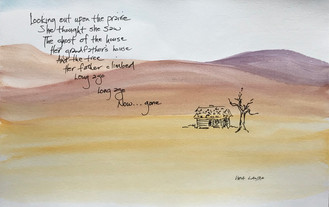 Looking out upon the prairie
She thought she saw
The ghost of the house
Her grandfather's house
And the tree
Her father climbed
Long ago
Long ago
Now... gone